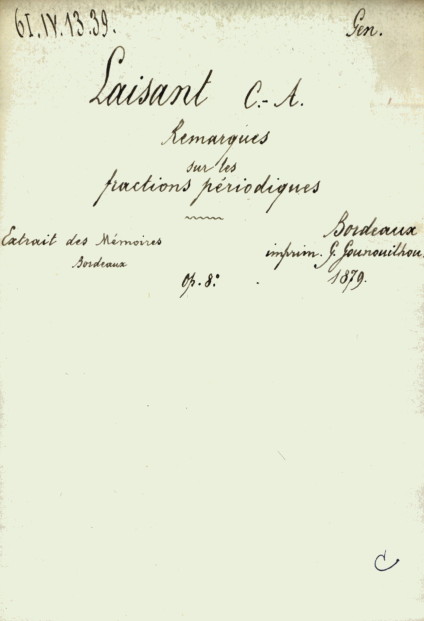 61.IV.13.39.
Gen.
Laisant C.-A.
Remarques
sur les
fractions périodiques
Extrait des Mémoires
Bordeaux
Bordeaux
imprim. G. Gounouilhou.
1879.
Op. 8º
C